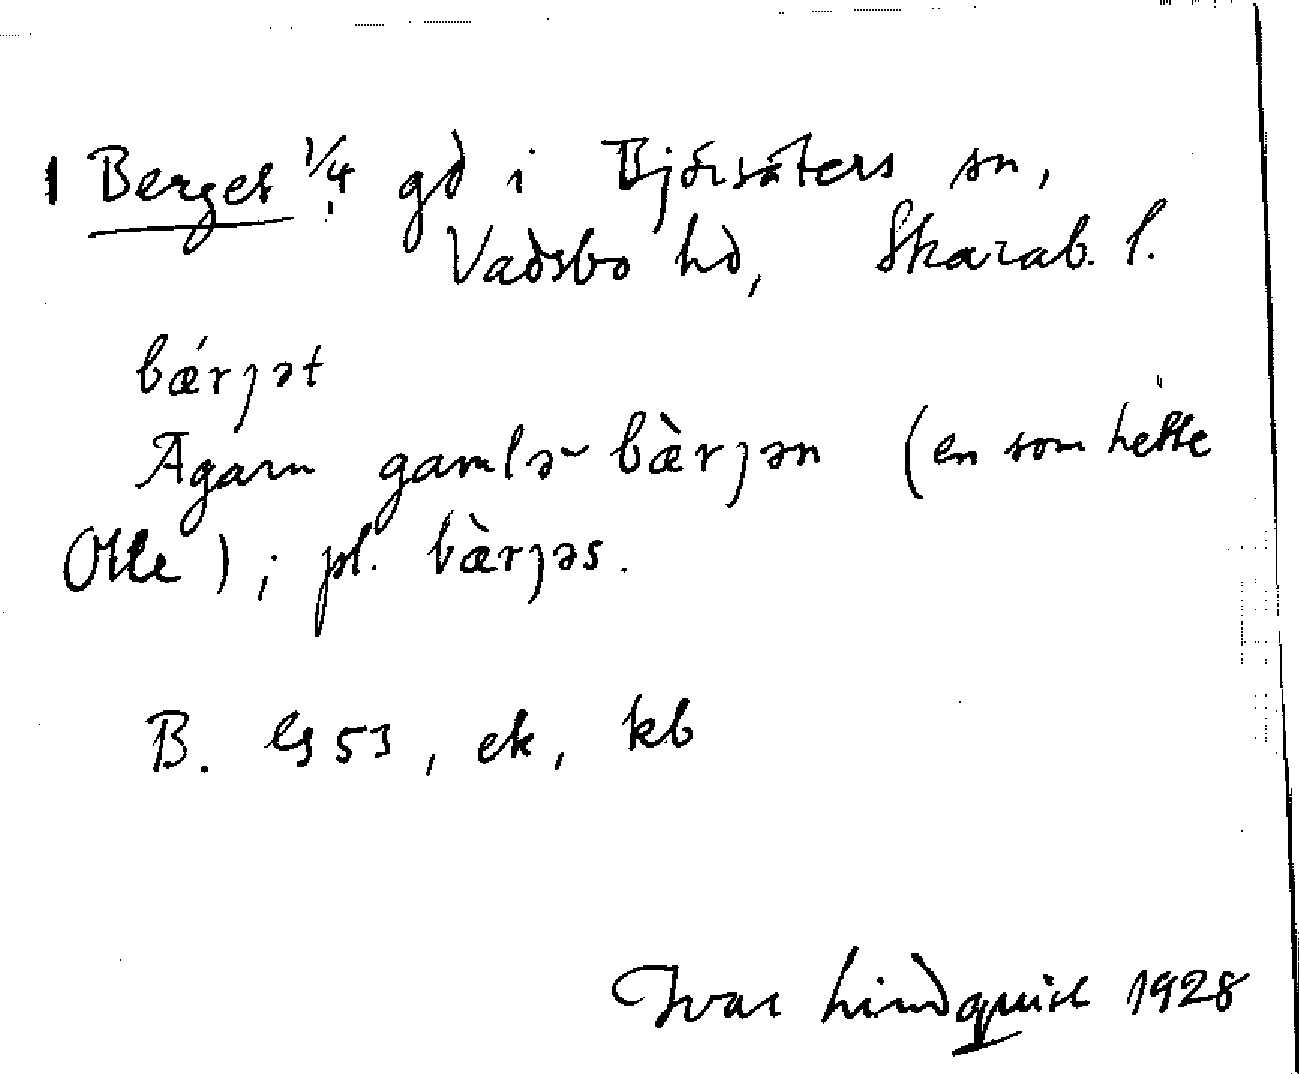 1 Berget 1/4 gd i Björsäters sn,
Vadsbo hd, Skarab. l.
bǽrȷət
Ägarn gamlə- bæ̀rȷən (en som hette
Olle); pl. bæ̀rȷəs.
B. GS 53, ek, kb
Ivar Lindquist 1928